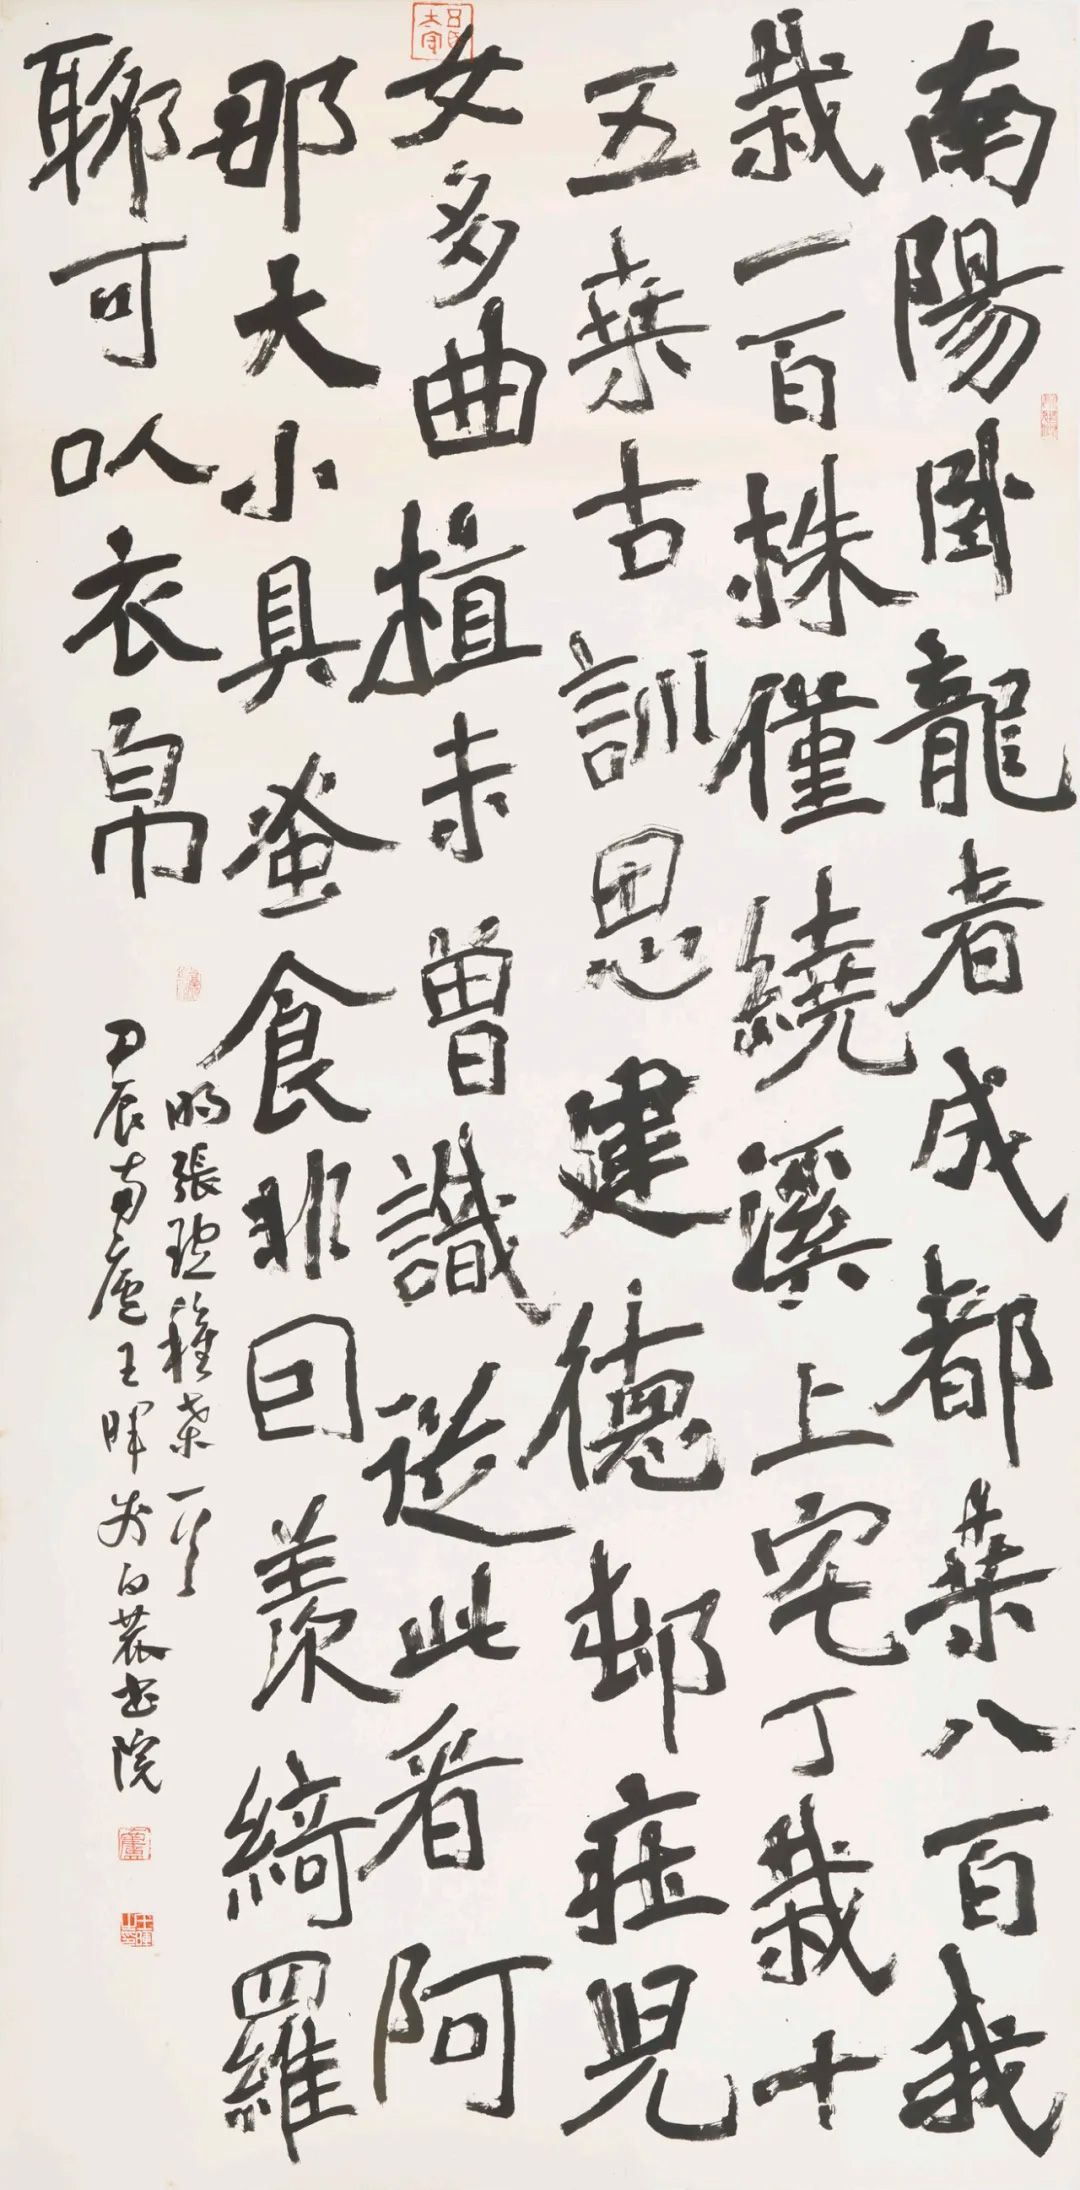 南陽卧龍者成都桑八百我
栽一百株僅繞溪上宅丁栽十
五桑古訓思建德邨莊兒
女多曲植未曾識從此看阿
那大小具蚕食非囙羨綺羅
聊可以衣帛
明張種桑一首
甲辰南廬王暉於白農书院